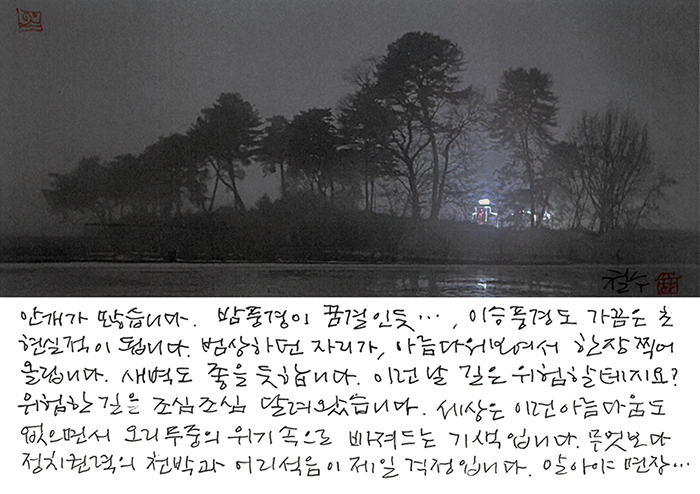 철수
안개가 많습니다. 밤풍경이 꿈결인듯…, 이승풍경도 가끔은 초
현실적이 됩니다. 범상하던 자리가, 아름다워보여서 한장 찍어
올립니다. 새벽도 좋을 듯합니다. 이런날 길은 위험할테지요?
위험한 길을 조심조심 달려왔습니다. 세상은 이런아름다움도
없으면서 오리무중의 위기 속으로 빠져드는 기색입니다. 무엇보다
정치권력의 천박과 어리석음이 제일 걱정입니다. 알아야 면장…